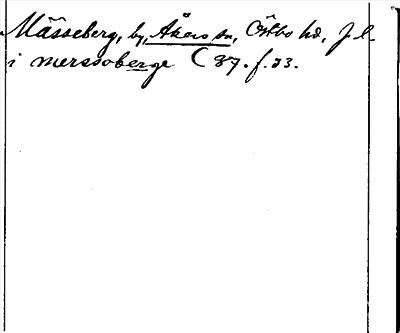 Mässeberg, by, Åkers sn, Östbo hd, J. l.
i merssoberge C 87. f. 23.